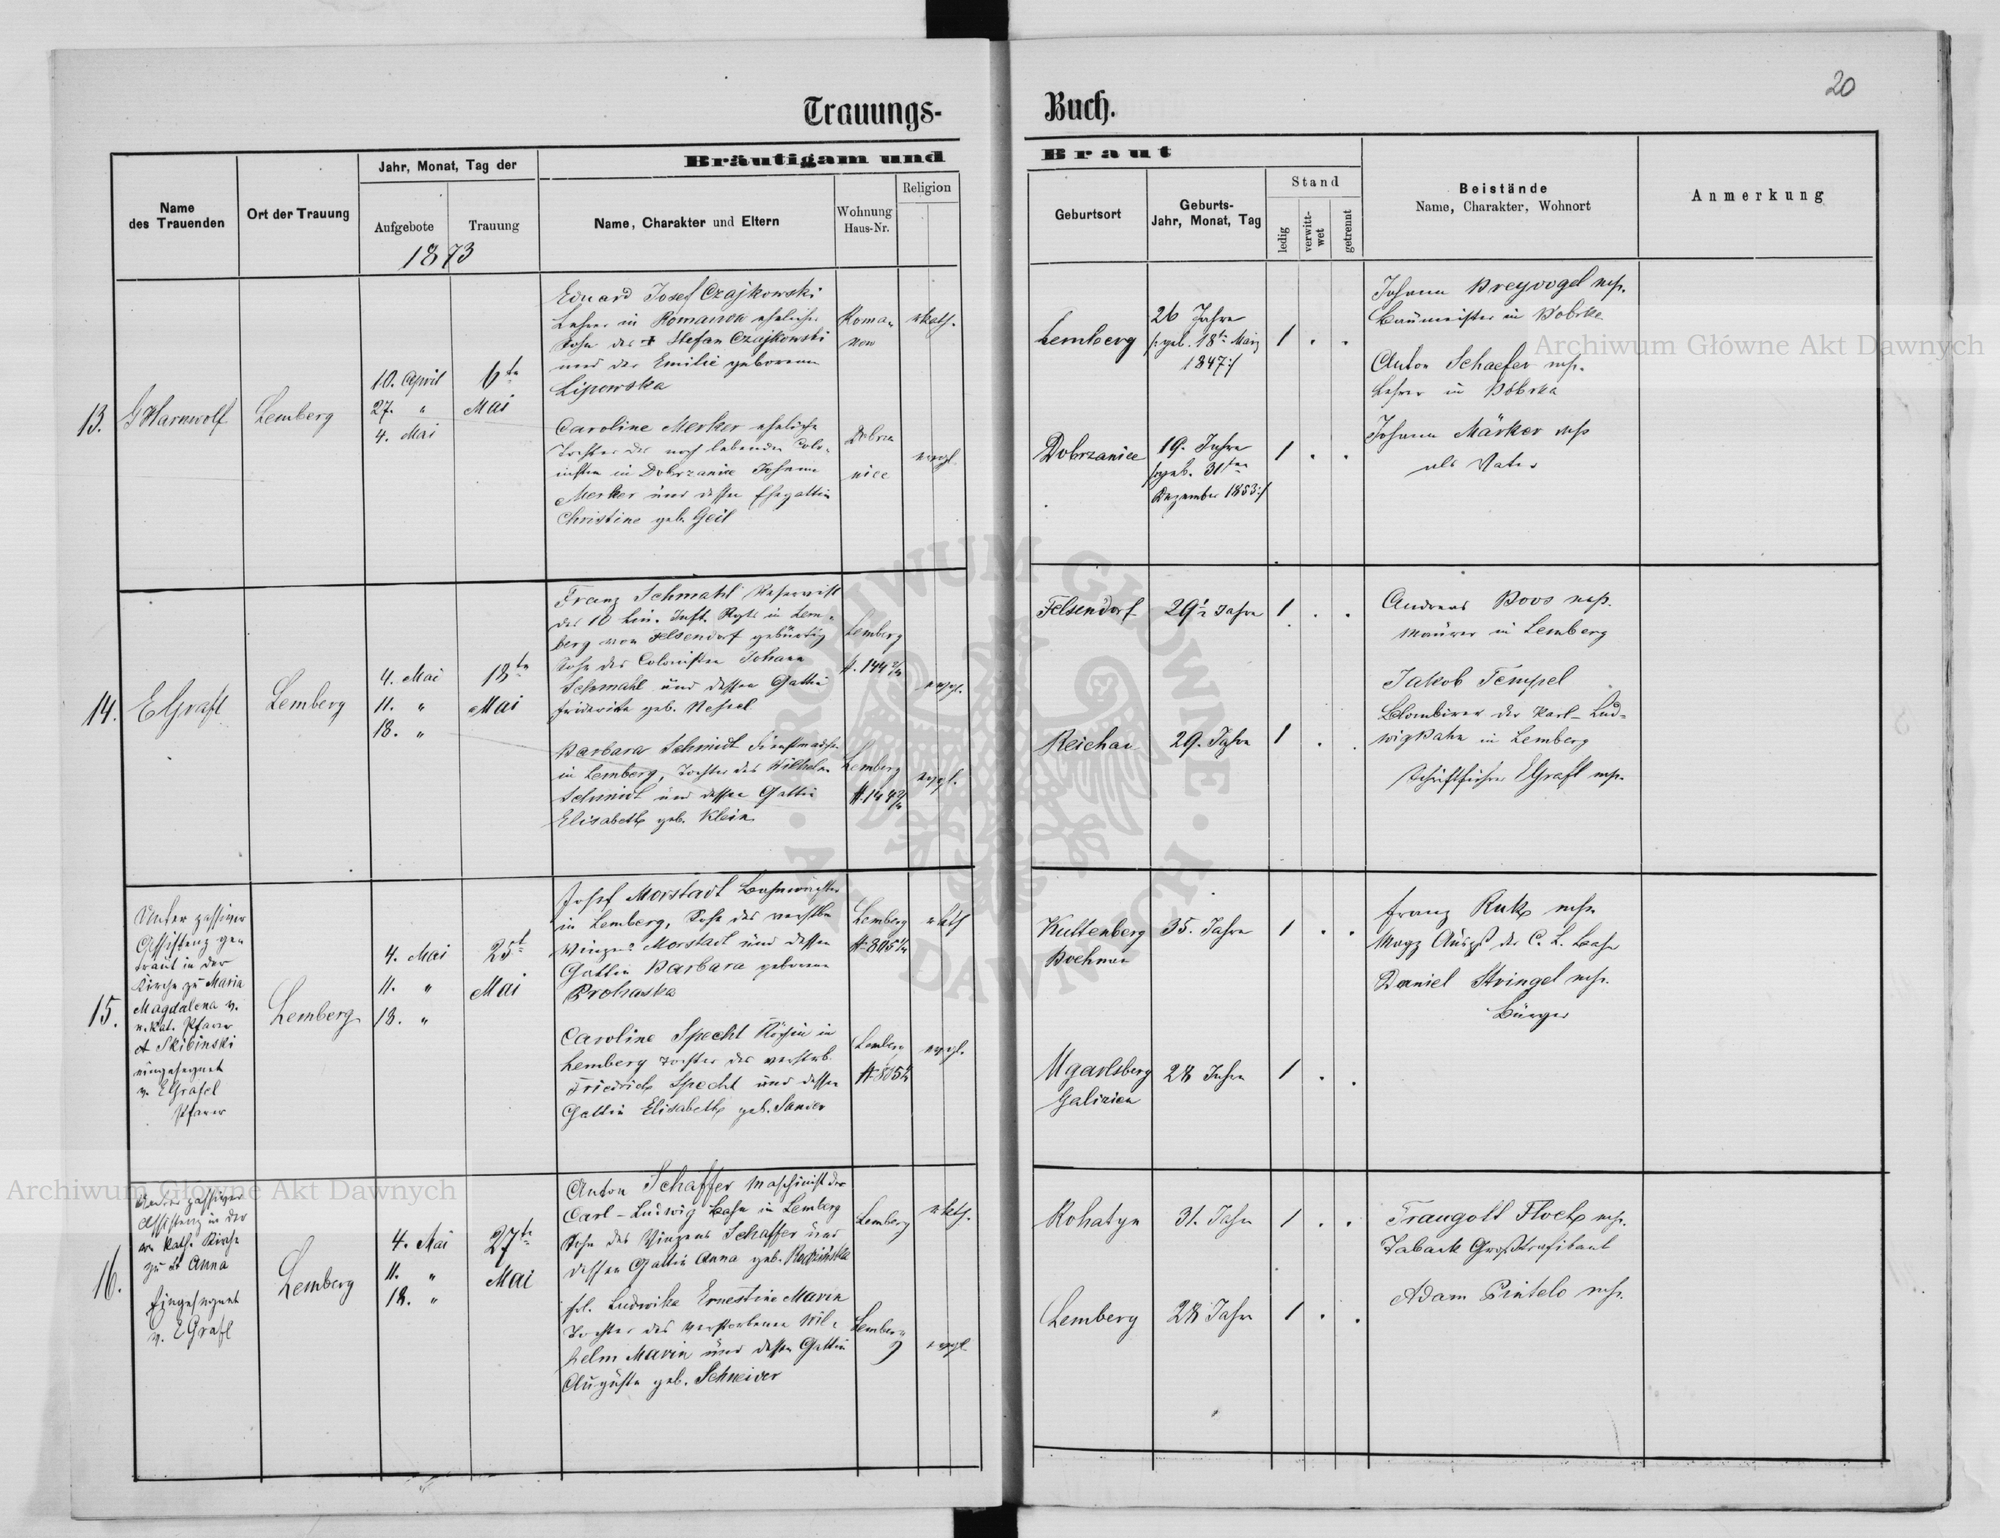 20
Trauungs- Buch.
Bräutigam und Braut
Name des Trauenden
Ort der Trauung
Jahr, Monat, Tag der
Aufgebote
Trauung
1873
Name, Charakter und Eltern
Wohnung Haus-Nr.
Religion
Geburtsort
Geburts- Jahr, Monat, Tag
Stand
ledig
verwitt- wet
getrennt
Beistände
Name, Charakter, Wohnort
Anmerkung
13.
Lemberg
10. April
27. "
4. Mai
6te
Mai
Eduard Josef Czajkowski
Lehrer in Romanow ehelicher
Sohn des + Stefan Czajkowski
und der Emilie geborenen
Lipowska
Roma-
now
rkath.
Caroline Merker eheliche
Tochter des noch lebenden Colo-
nisten in Dobrzanice Johann
Merker und dessen Ehegattin
Christine geb. Geil
Dobrza
nice
evgl.
Lemberg
26 Jahre
/:geb. 18te März
1847:/
1 . .
Dobrzanice
19. Jahre
/:geb. 31ten
Dezember 1853:/
1 . .
Johann Breyvogel mp.
Baumeister in Bobrka
Anton Schaefer mp.
Lehrer in Bobrka
Johann Märker mp
als Vater
14.
EGrafl
Lemberg
4. Mai
11. "
18. "
18te
Mai
Franz Schmahl Reservist
des 10 Lin. Inft. Regts in Lem-
berg von Felsendorf gebürtig
Sohn des Colonisten Johann
Schmahl und dessen Gattin
Friderike geb.
Lemberg
evgl.
Barbara Schmidt Dienstmagd
in Lemberg, Tochter des Wilhelm
Schmidt und dessen Gattin
Elisabeth geb. Klein
Lemberg
evgl.
Felsendorf
29½ Jahre
1 . .
Reichau
29. Jahre
1 . .
Andreas Boos mp.
Maurer in Lemberg
Jakob Tempel
der Karl-Lud-
wigBahn in Lemberg
Schriftführer EGrafl mp.
15.
Unter passiver
Assistenz
traut in der
Kirche zu Maria
Magdalena v.
r. kat. Pfarer
A Skibinski
eingesegnet
v. EGrafl
Pfarer
Lemberg
4. Mai
11. "
18. "
25t
Mai
Josef Morstadt Bahnwächter
in Lemberg, Sohn des verstbn
Winzens Morstadt und dessen
Gattin Barbara geborene
Prohaska
Lemberg
rkth
Caroline Specht Köchin in
Lemberg Tochter des verstorb.
Friedrich Specht und dessen
Gattin Elisabeth geb. Sander
Lemberg
evgl.
Kuttenberg
Boehmen
35. Jahre
1 . .
Ugartsberg
Galizien
28 Jahre
1 . .
Franz mp.
der C. L. Bahn
Daniel Stringel mp.
Bürger
16.
Unter passiver
Assistenz in der
rm kath. Kirche
zu St Anna
Eingesegnet
v. EGrafl
Lemberg
4. Mai
11. "
18. "
27te
Mai
Anton Schaffer Maschinist der
Carl-Ludwig Bahn in Lemberg
Sohn des Vinzens Schaffer und
dessen Gattin Anna geb.
Lemberg
rkth.
frl. Ludwika Ernestine Marin
Tochter des verstorbenen Wil-
helm Marin und dessen Gattin
Auguste geb. Schneider
Lemberg
evgl.
Rohatyn
31. Jahre
1 . .
Lemberg
28 Jahre
1 . .
Traugott Floch mp.
Taback Großtrafikant
Adam Pintelo mp.
Archiwum Główne Akt Dawnych
Archiwum Główne Akt Dawnych
ARCHIWUM GŁÓWNE AKT DAWNYCH